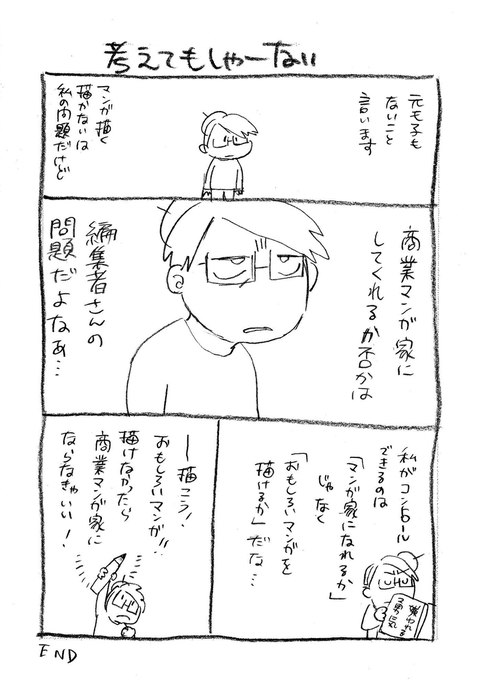 考えてもしゃーない
元も子も
ないこと
言います
マンガ描く
描かないは
私の問題だけど
商業マンガ家に
してくれるか否かは
編集者さんの
問題だよなぁ…
私がコントロール
できるのは
「マンガ家になれるか」
じゃなく
「おもしろいマンガを
描けるか」だな…
嫌われる
勇気
―描こう!
おもしろいマンガ!!
描けなかったら
商業マンガ家に
ならなきゃいい!
END